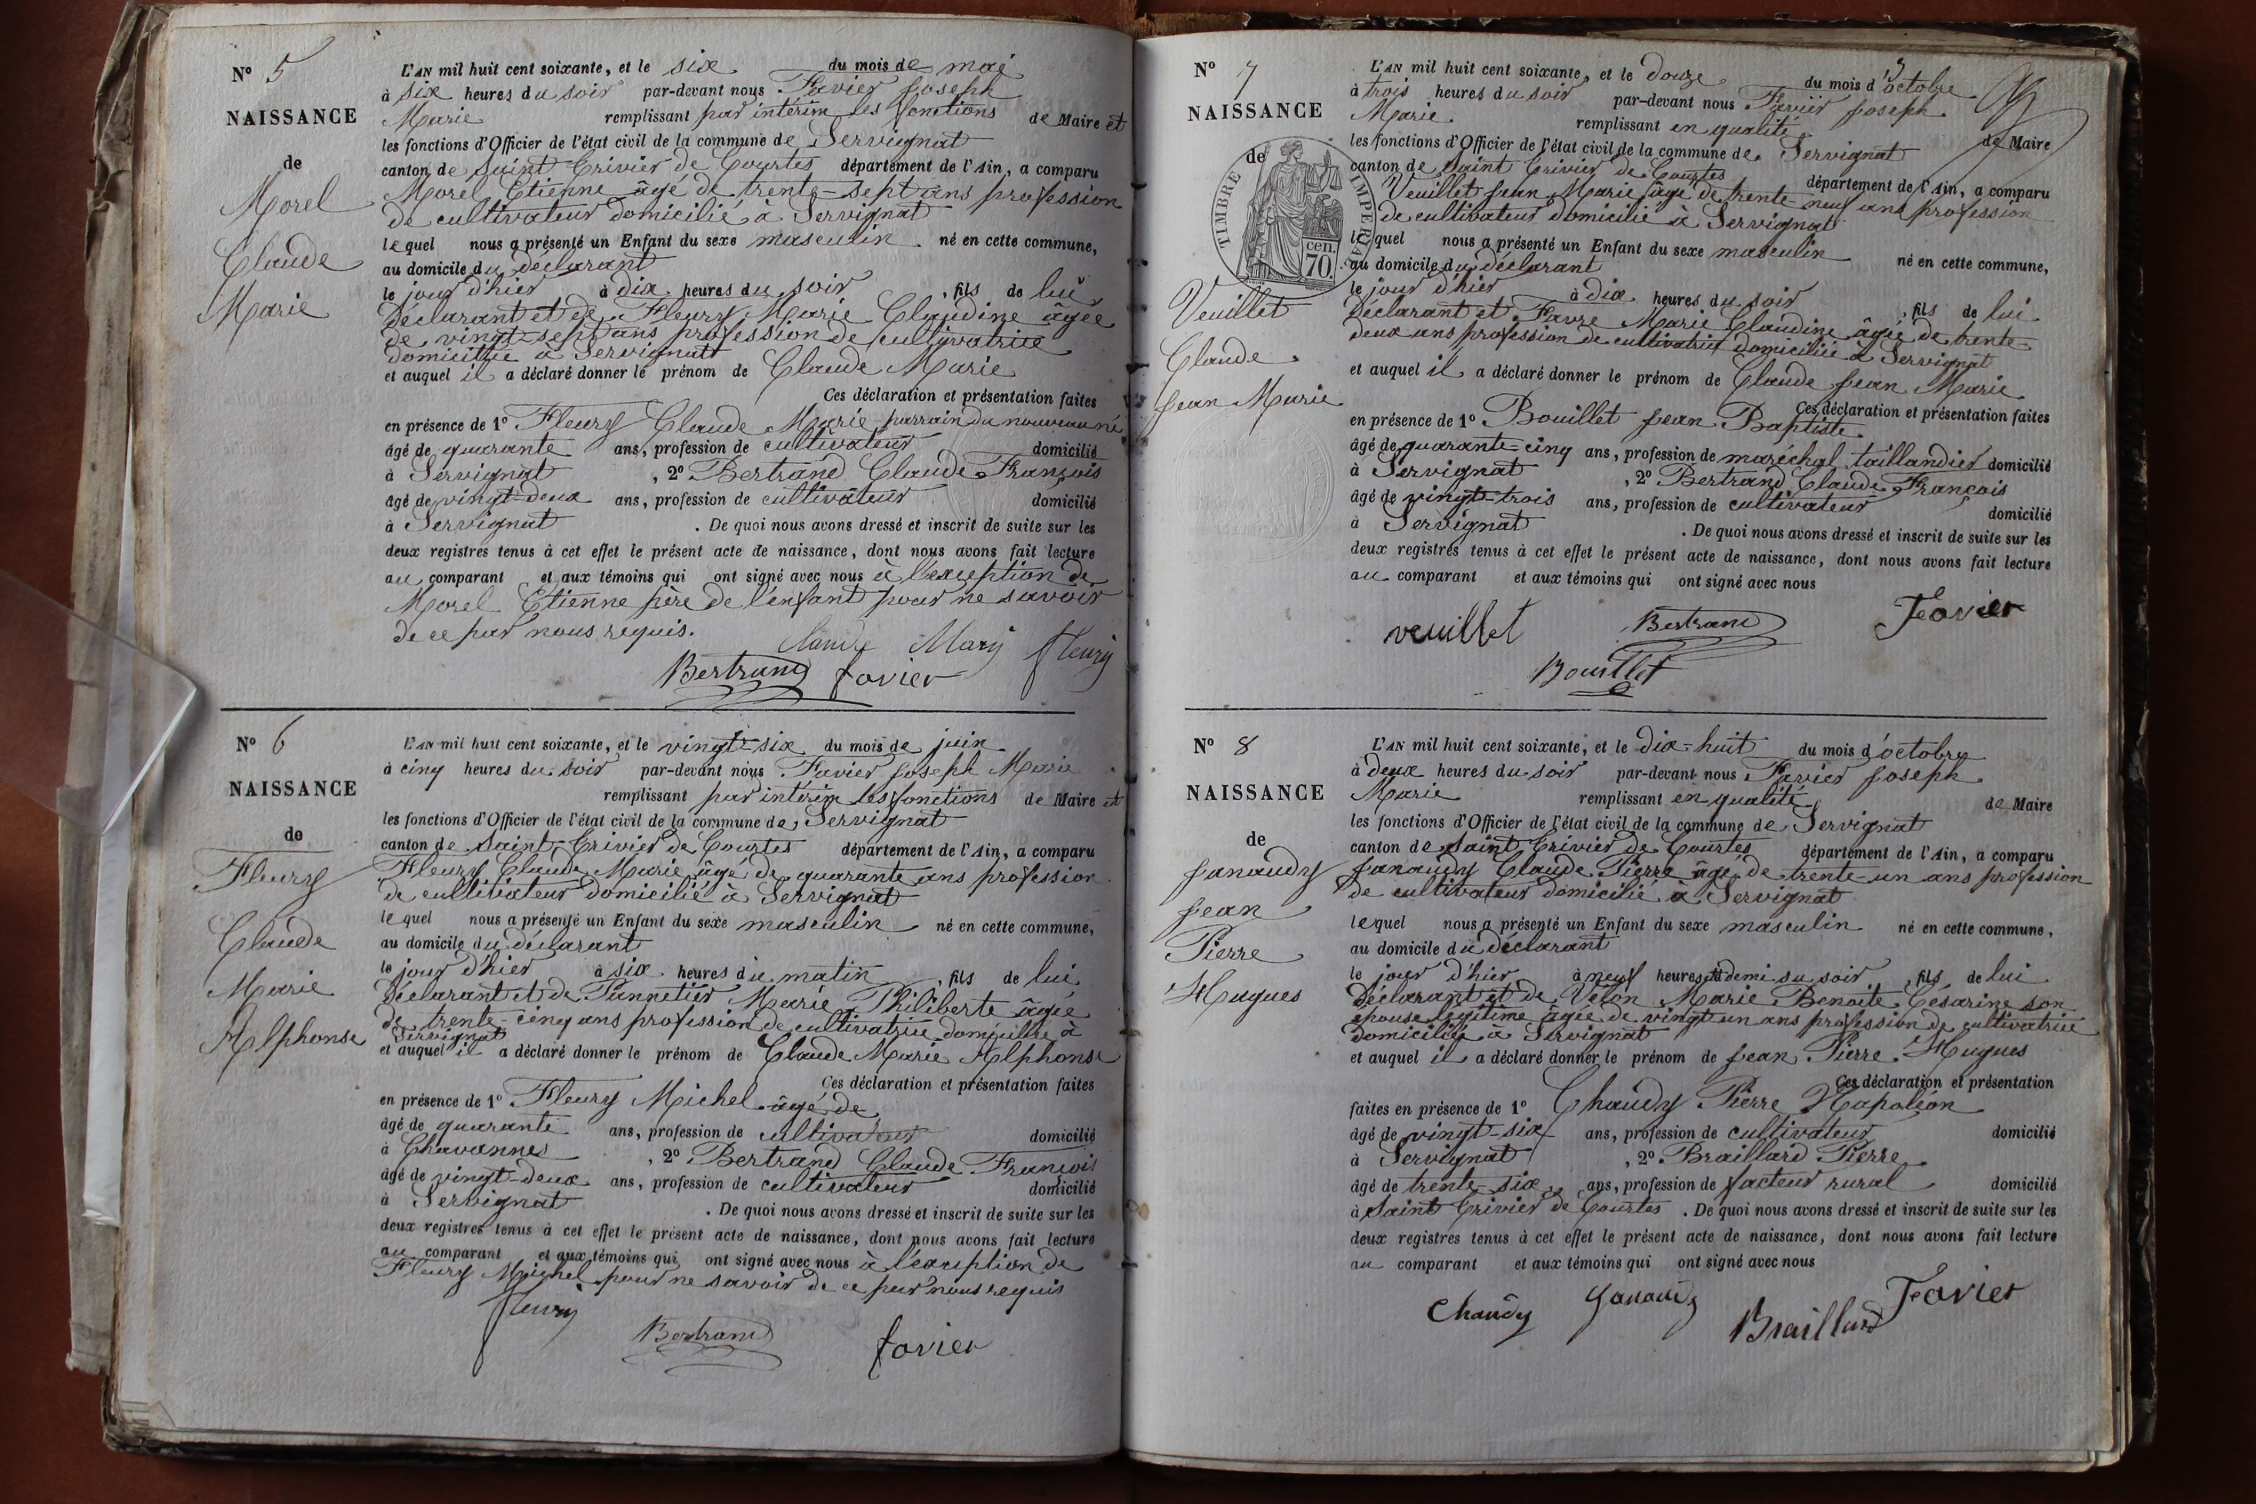 N° 5
NAISSANCE
de
Morel
Claude
Marie
L'AN mil huit cent soixante, et le six du mois de mai
à six heures du soir par-devant nous Favier Joseph
Marie remplissant par intérim les fonctions de Maire et
les fonctions d'Officier de l'état civil de la commune de Servignat
canton de Saint Trivier de Courtes département de l'Ain, a comparu
Morel Etienne âgé de trente-sept ans profession
de cultivateur domicilié à Servignat
lequel nous a présenté un Enfant du sexe masculin né en cette commune,
au domicile du déclarant
le jour d'hier à dix heures du soir, fils de lui
déclarant et de Fleury Marie Claudine âgée
de vingt-sept ans profession de cultivatrice
domiciliée à Servignat
et auquel il a déclaré donner le prénom de Claude Marie
Ces déclaration et présentation faites
en présence de 1° Fleury Claude Marie parrain du nouveau né
âgé de quarante ans, profession de cultivateur domicilié
à Servignat, 2° Bertrand Claude François
âgé de vingt-deux ans, profession de cultivateur domicilié
à Servignat. De quoi nous avons dressé et inscrit de suite sur les
deux registres tenus à cet effet le présent acte de naissance, dont nous avons fait lecture
au comparant et aux témoins qui ont signé avec nous à l'exception de
Morel Etienne père de l'enfant pour ne savoir
de ce par nous requis.
Claude Mary fleury
Bertrand favier
N° 6
NAISSANCE
de
Fleury
Claude
Marie
Alphonse
L'AN mil huit cent soixante, et le vingt-six du mois de juin
à cinq heures du soir par-devant nous Favier Joseph Marie
remplissant par intérim les fonctions de Maire et
les fonctions d'Officier de l'état civil de la commune de Servignat
canton de Saint-Trivier de Courtes département de l'Ain, a comparu
Fleury Claude Marie âgé de quarante ans profession
de cultivateur domicilié à Servignat
lequel nous a présenté un Enfant du sexe masculin né en cette commune,
au domicile du déclarant
le jour d'hier à six heures du matin, fils de lui
déclarant et de Pannetier Marie Philiberte âgée
de trente-cinq ans profession de cultivatrice domiciliée à
Servignat
et auquel il a déclaré donner le prénom de Claude Marie Alphonse
Ces déclaration et présentation faites
en présence de 1° Fleury Michel âgé de
âgé de quarante ans, profession de cultivateur domicilié
à Chavannes, 2° Bertrand Claude François
âgé de vingt-deux ans, profession de cultivateur domicilié
à Servignat. De quoi nous avons dressé et inscrit de suite sur les
deux registres tenus à cet effet le présent acte de naissance, dont nous avons fait lecture
au comparant et aux témoins qui ont signé avec nous à l'exception de
Fleury Michel pour ne savoir de ce par nous requis
fleury
Bertrand favier
N° 7
NAISSANCE
de
TIMBRE IMPERIAL
70 cen.
Veuillet
Claude
Jean Marie
L'AN mil huit cent soixante, et le douze du mois d'octobre
à trois heures du soir par-devant nous Favier Joseph
Marie remplissant en qualité de Maire
les fonctions d'Officier de l'état civil de la commune de Servignat
canton de Saint Trivier de Courtes département de l'Ain, a comparu
Veuillet Jean Marie âgé de trente neuf ans profession
de cultivateur domicilié à Servignat
lequel nous a présenté un Enfant du sexe masculin né en cette commune,
au domicile du déclarant
le jour d'hier à dix heures du soir, fils de lui
déclarant et Favre Marie Claudine âgée de trente-
deux ans profession de cultivatrice domiciliée à Servignat
et auquel il a déclaré donner le prénom de Claude Jean Marie
Ces déclaration et présentation faites
en présence de 1° Bouillet Jean Baptiste
âgé de quarante-cinq ans, profession de maréchal taillandier domicilié
à Servignat, 2° Bertrand Claude François
âgé de vingt-trois ans, profession de cultivateur domicilié
à Servignat. De quoi nous avons dressé et inscrit de suite sur les
deux registres tenus à cet effet le présent acte de naissance, dont nous avons fait lecture
au comparant et aux témoins qui ont signé avec nous
veuillet Bertrand Favier
Bouillet
N° 8
NAISSANCE
de
Janaudy
Jean
Pierre
Hugues
L'AN mil huit cent soixante, et le dix-huit du mois d'octobre
à deux heures du soir par-devant nous Favier Joseph
Marie remplissant en qualité de Maire
les fonctions d'Officier de l'état civil de la commune de Servignat
canton de Saint Trivier de Courtes département de l'Ain, a comparu
Janaudy Claude Pierre âgé de trente-un ans profession
de cultivateur domicilié à Servignat
lequel nous a présenté un Enfant du sexe masculin né en cette commune,
au domicile du déclarant
le jour d'hier à neuf heures et demi du soir, fils de lui
déclarant et de Velon Marie Benoite Césarine son
épouse légitime âgée de vingt un ans profession de cultivatrice
domiciliée à Servignat
et auquel il a déclaré donner le prénom de Jean Pierre Hugues
Ces déclaration et présentation
faites en présence de 1° Chaudy Pierre Napoléon
âgé de vingt-six ans, profession de cultivateur domicilié
à Servignat, 2° Braillard Pierre
âgé de trente-six ans, profession de facteur rural domicilié
à Saint Trivier de Courtes. De quoi nous avons dressé et inscrit de suite sur les
deux registres tenus à cet effet le présent acte de naissance, dont nous avons fait lecture
au comparant et aux témoins qui ont signé avec nous
Chaudy Janaudy Braillard Favier